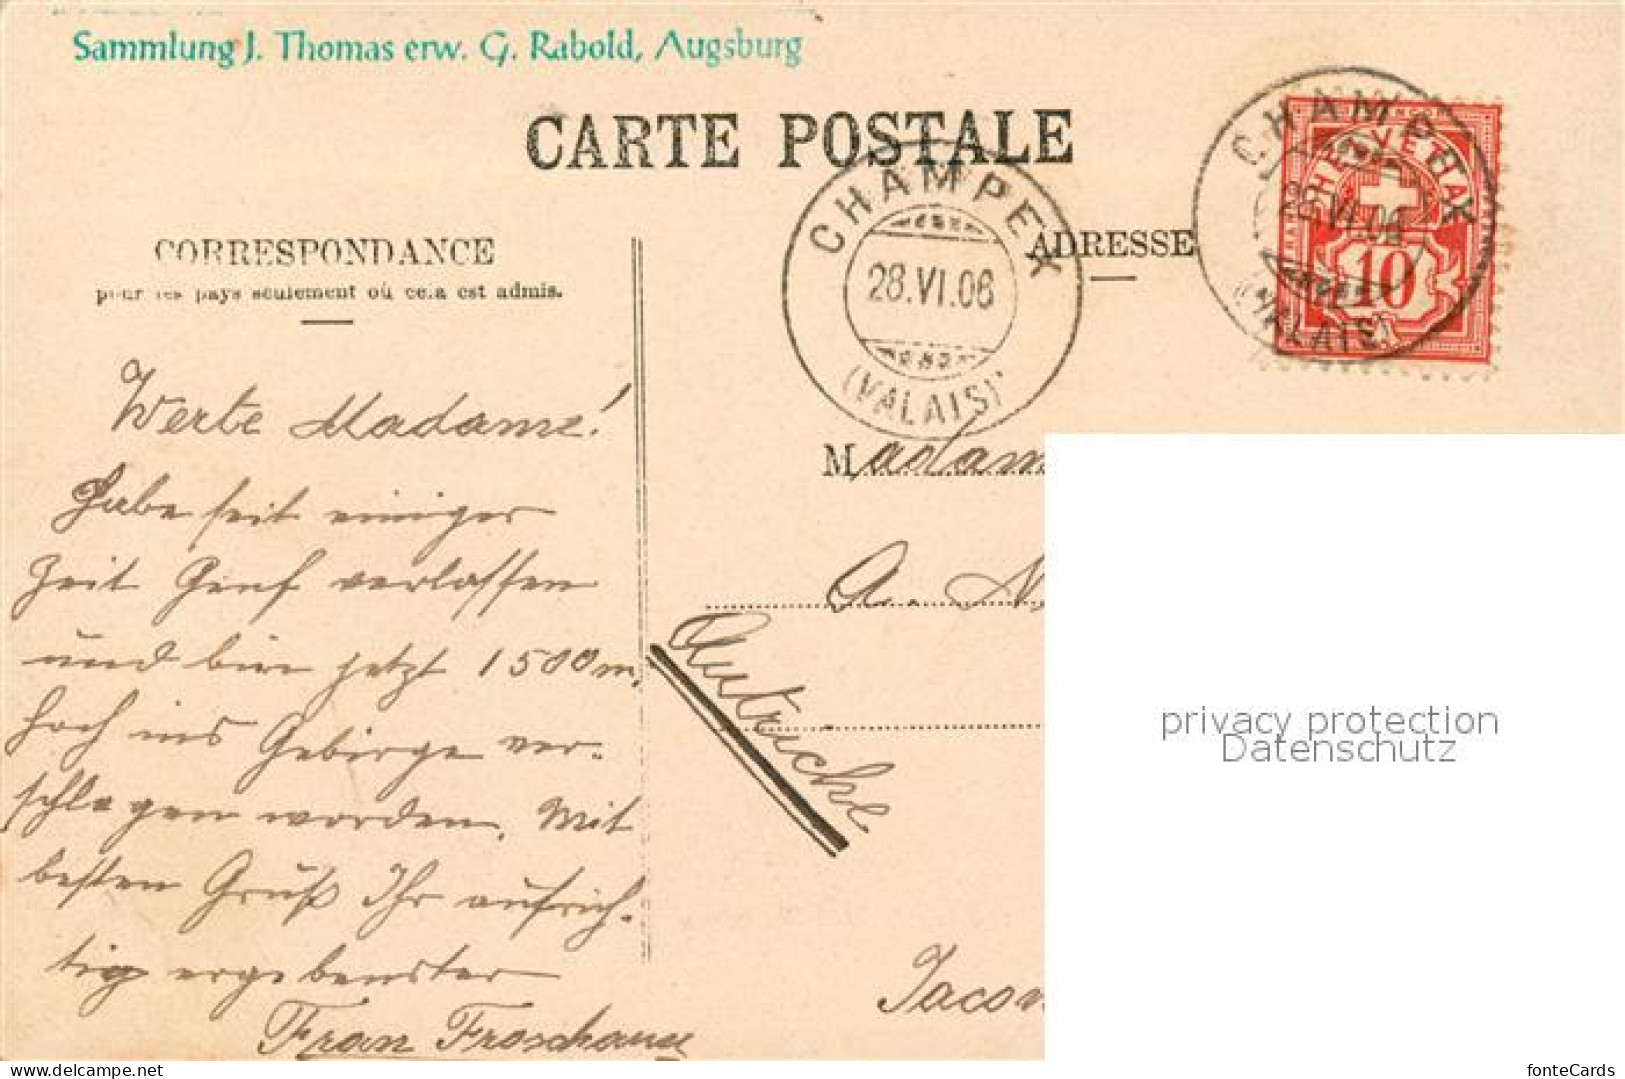 Sammlung J. Thomas erw. G. Rabold, Augsburg
CARTE POSTALE
CHAMPEX
28.VI.06
(VALAIS)
CHAMPEX
28.VI.06
(VALAIS)
HELVETIA
10
CORRESPONDANCE
pour les pays seulement où cela est admis.
ADRESSE
Werte Madame!
Habe seit einiger
Zeit Genf verlassen
und bin jetzt 1500 m.
hoch ins Gebirge ver-
schlagen worden. Mit
besten Gruß Ihr aufrich-
tig ergebenster
Franz
Madam
A. N
Autriche
privacy protection
Datenschutz
delcampe.net
fonteCards